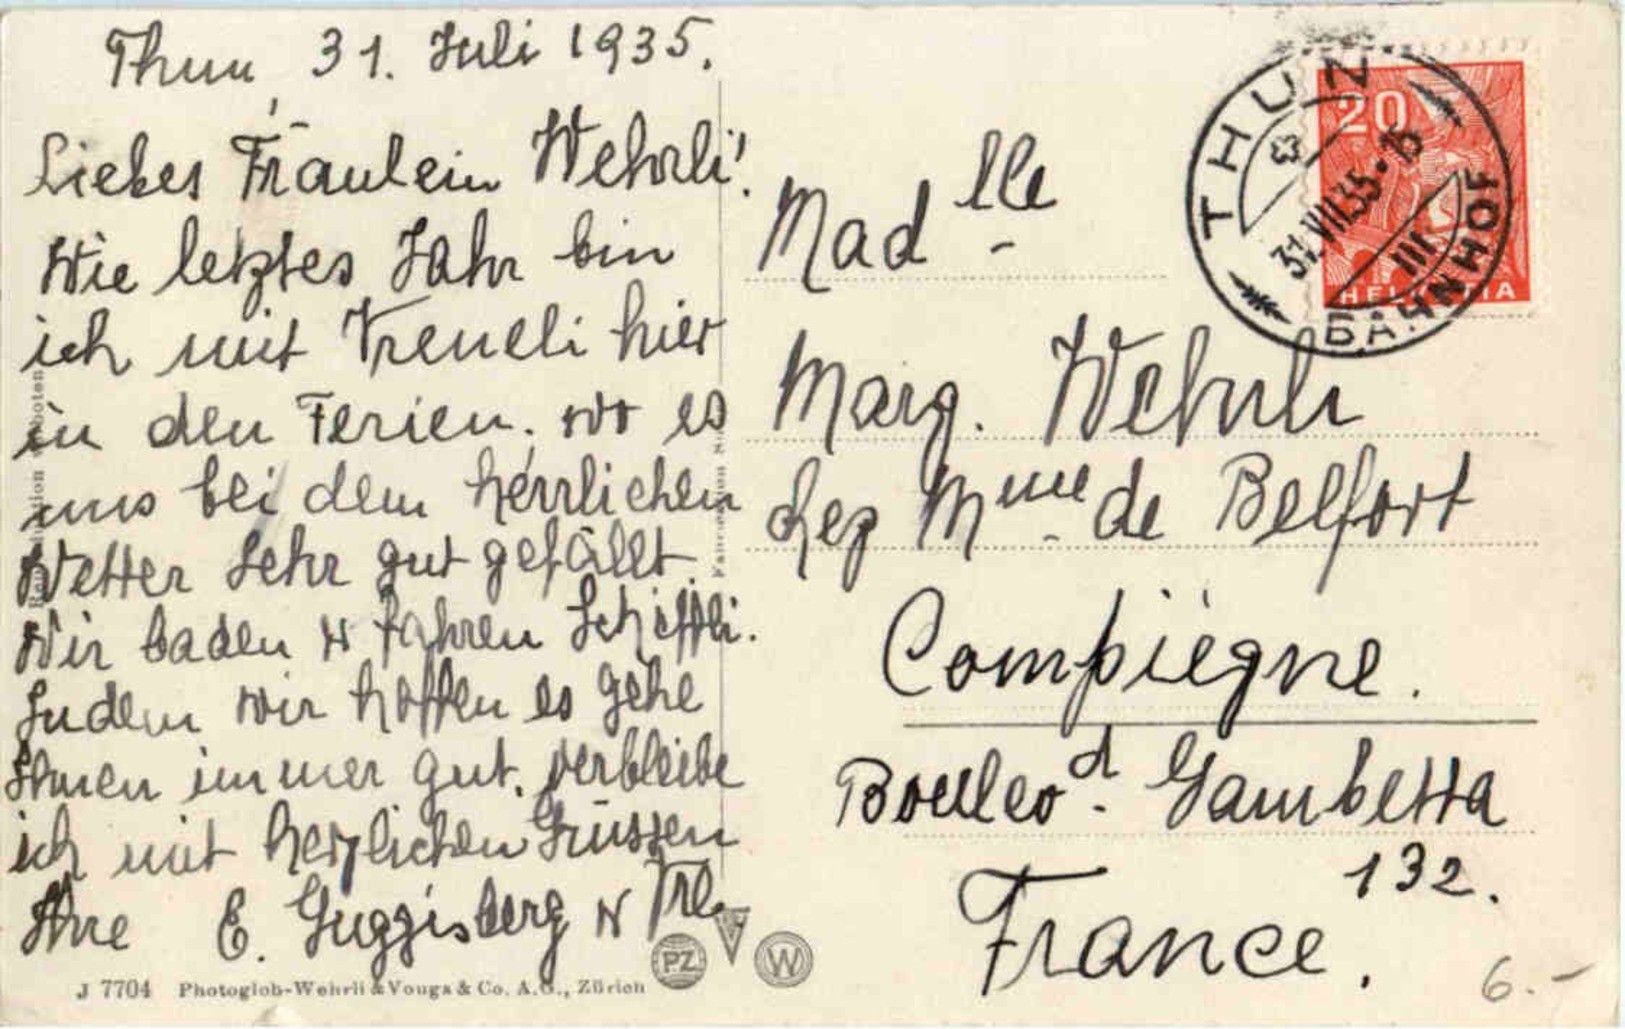 Thun, 31. Juli 1935.
Liebes Fräulein Wehrli!
Wie letztes Jahr bin
ich mit Vreneli hier
in den Ferien. wo es
uns bei dem herrlichen
Wetter sehr gut gefällt.
Wir baden u fahren Schiffli.
Indem wir hoffen es gehe
Ihnen immer gut, verbleibe
ich mit herzlichen Grüssen
Ihre E. Guggisberg u Vrl.
J 7704 Photoglob-Wehrli & Vouga & Co. A.G., Zürich
PZ
W
THUN
31.VII.35.-16
III
BAHNHOF
20
HELVETIA
Madlle
Marg. Wehrli
chez Mme de Belfort
Compiègne.
Boulevd. Gambetta
132.
France.
6.-